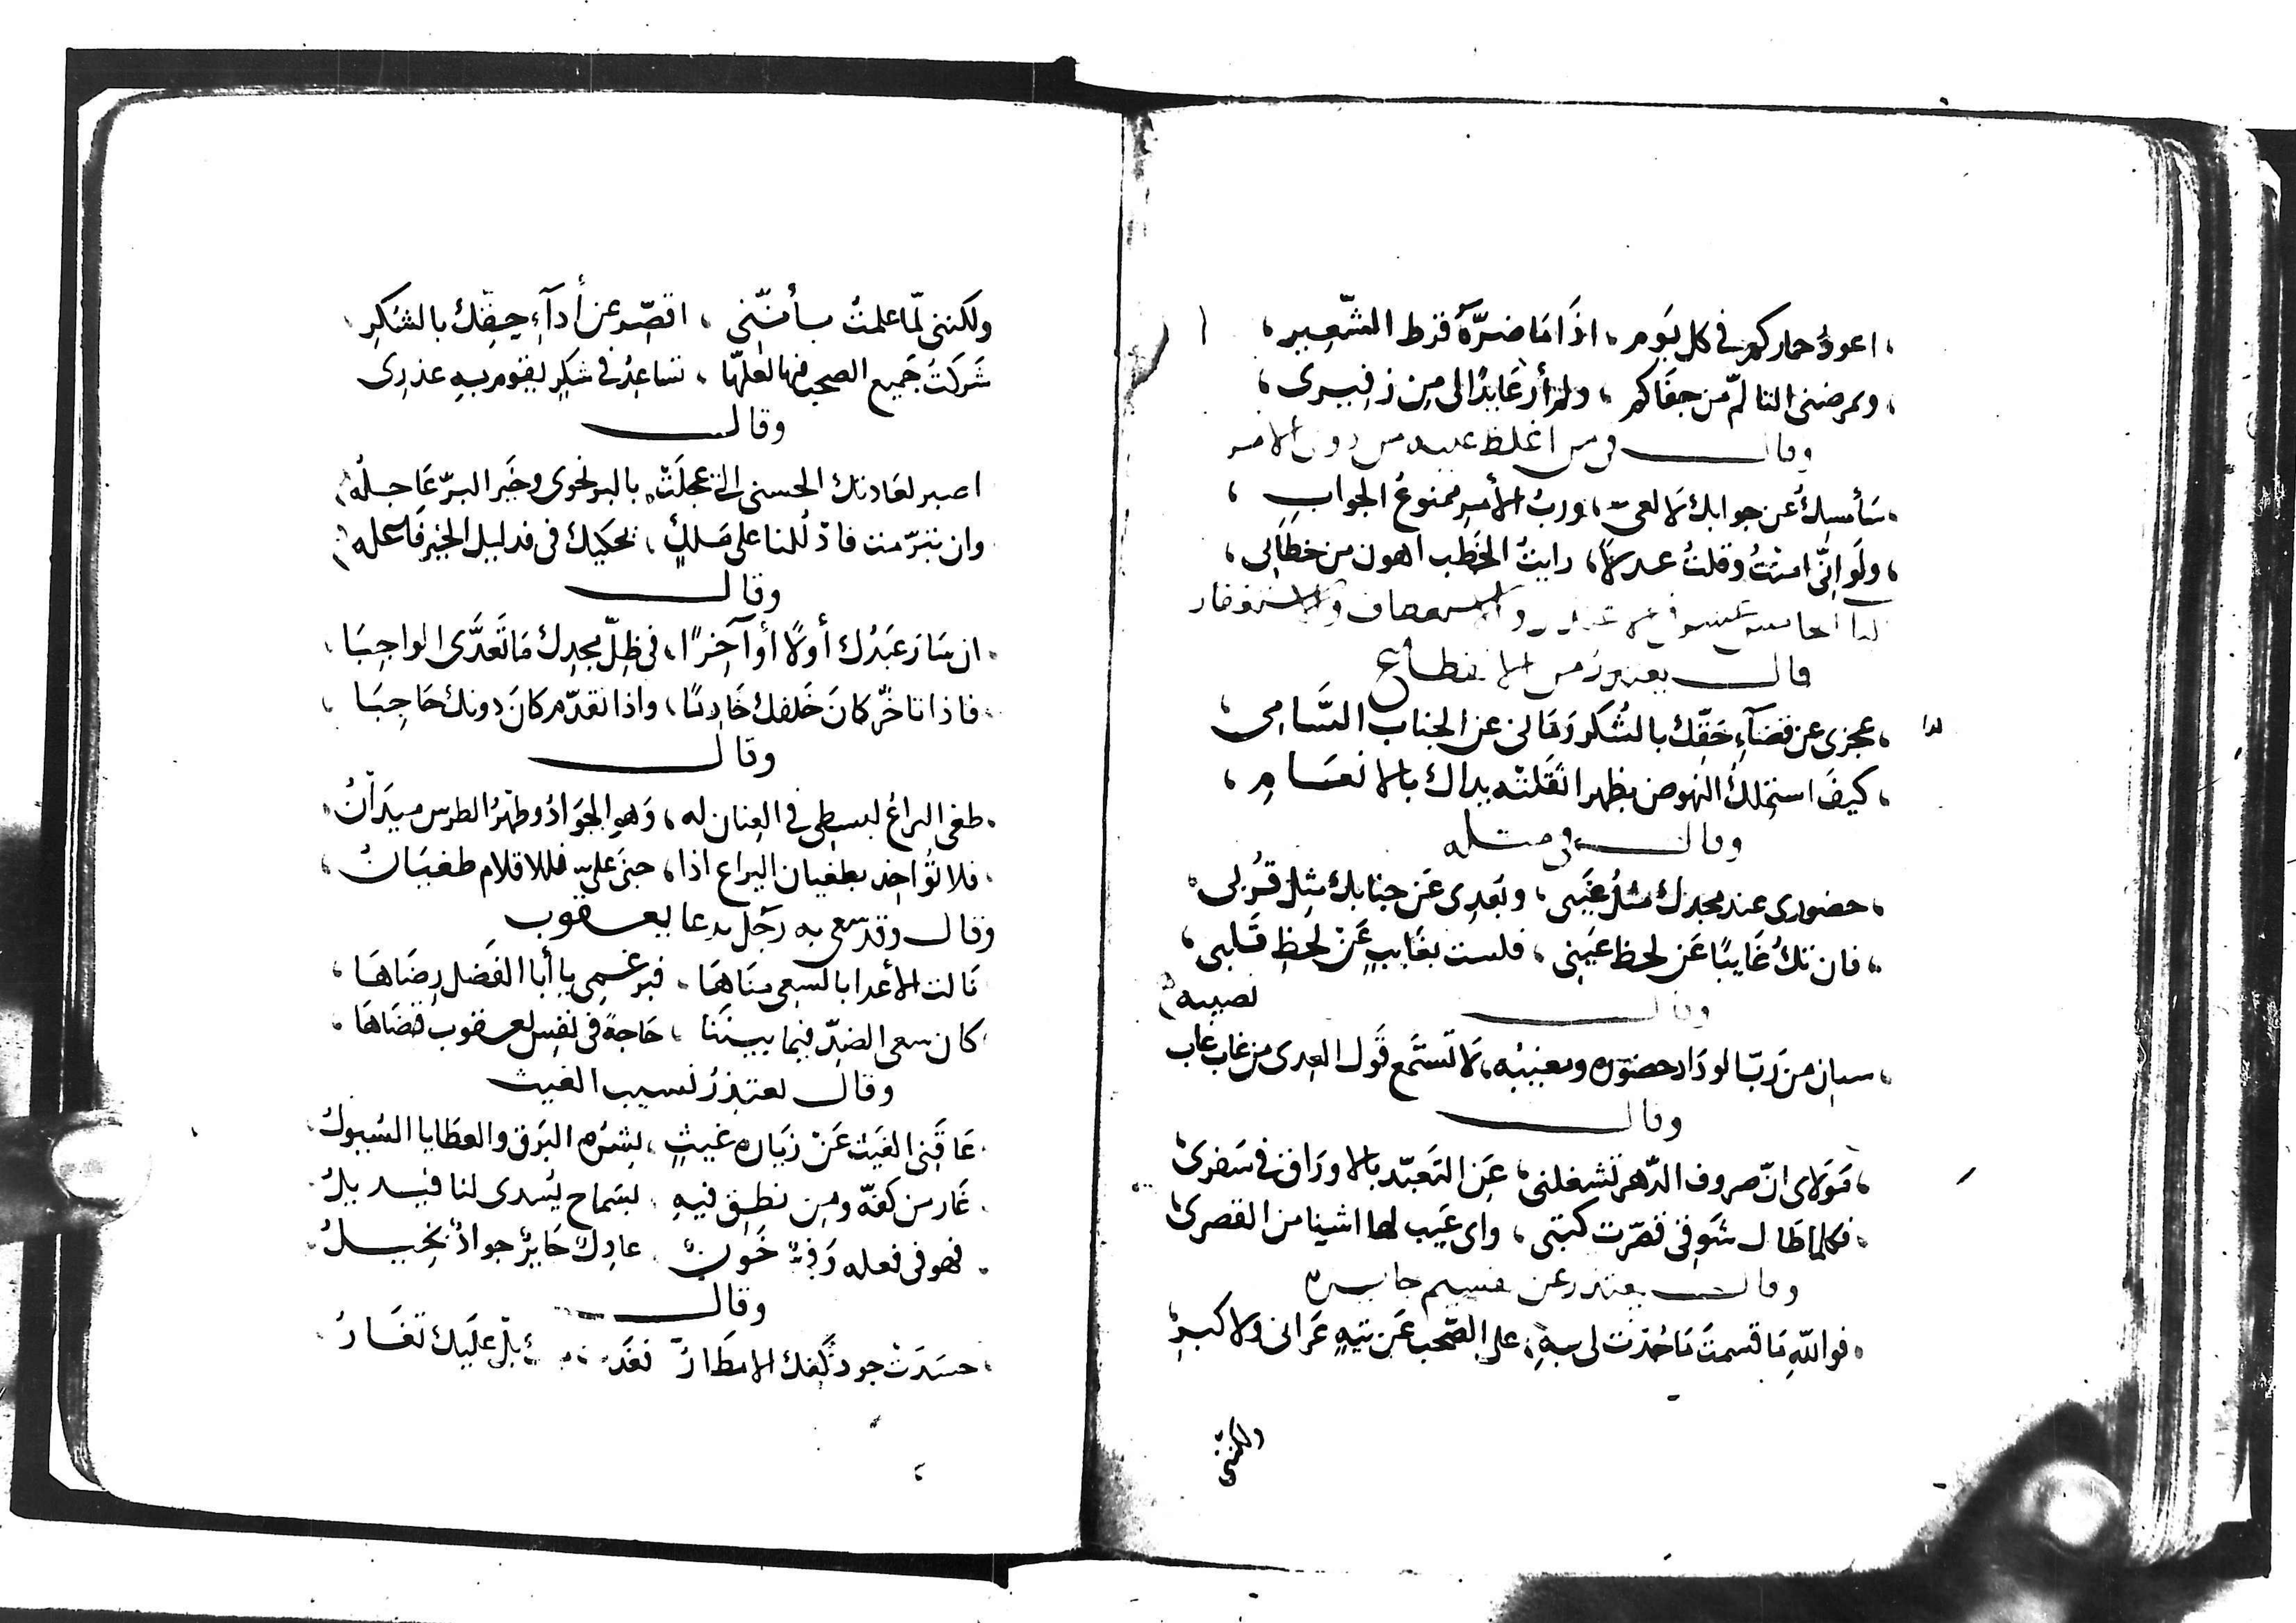 اعود حماركم في كل يَوم، اذَا مَا ضرَّهُ فرط الشّعِير،
ويمرضني التالّم من جفَاكم، ولم أر عَايدًا لي مِن زفيرى،
وقال في من اغلظ عليه من دون الامر
سَأمسكُ عن جوابك لَا لعىّ، وربُ الأمرِ ممنوعُ الجوابِ،
ولَو اَنّى امنْتُ وقلتُ عدلًا، رايتُ الخَطب اهون من خطابى،
والاستعطاف والاستغفار
قال يعتذر من الانقطاع
عجزى عن قضَآءِ حَقّك بالشُكر رَمَانى عن الجناب السَّامِى،
كيفَ استملكُ النهوض بظهر اثقلتْه يداك بالانعَامِ،
وقال في مثله
حضورى عند مجدك مثلُ غَيبى، وبَعدِى عَن جنابك مثِلُ قُربى
فان تكُ غَايبًا عَن لحظ عَينِى، فلست بغَايبٍ عَنْ لحظِ قَلبى،
وقال
سيان من رَبّ الودَاد حضوره ومغيبه، لَا تستَمع قَول العِدى من غاب غاب نصيبه
وقال
مَولاى انّ صروف الدّهر تشغلنى، عَنِ التَعبّد بالاورَاق في سَفرى
فكلما طَال شَوقى قصّرت كتبتى، واى عَيب لها اشينا من القصرى
وقال يعتذر عن تقسيم جايزة
فواللهِ مَا قسمتَ مَا جُدْت لي بهِ، على الصّحب عَن تيهٍ عَرانى ولا كبرِ
ولكننى
ولكننى لمّا علمتُ بأنّنى، اقصّر عن أدآءِ حقِّك بالشكرِ
شَركَتُ جَميع الصحب فيها لعلّها، تساعِدُ في شكرٍ يقوم بهِ عذرِى
وقال
اصبر لعَادتك الحسنى التى عجلَتْ بالبر نحوى وخَير البرّ عَاجلُهُ
وان تبرّمت فادْلُلنا على مَلكٍ، يحكيك في فدليل الخير فَاعله
وقال
ان سَارَ عَبدُك أولًا أو آخرًا، في ظِلّ مجدِك مَا تَعدَّى الواجِبَا
فاذا تاخّر كانَ خَلفك خَادِمًا، واذا تقدّم كانَ دونك حَاجِبَا
وقال
طغى اليراعُ لبسطى في العِنان له، وَهو الجوَادُ وظهرُ الطرس ميدَانُ
فلا تُؤاخِذ بطغيان اليراع اذا، جنىَ علىّ فللاقلام طغيَانُ
وقال وقد سعى به رَجُل يدعا يعقوب
نَالت الأعدا بالسعى منَاهَا، فبرغمى يا أبا الفَضل رِضَاهَا
كان سعى الضِدّ فيما بيننَا، حَاجةً في نفسِ يعقوب قضَاهَا
وقال يعتذرُ بسبب الغيث
عَاقَنِى الغَيث عَنْ زيَاره غيثٍ، بِشرُه البَرق والعطَايا السُيولُ
غَار من كفّه ومِن نطقِ فيهِ، بسَماح يُسدى لنا فيسيلُ
فهو في فعله وَفِىٌ خَون، عادِلٌ جَايرٌ جوادٌ بخيلُ
وقال
حسَدَتْ جودَ كفك الامطَارُ عليَك تَغَارُ